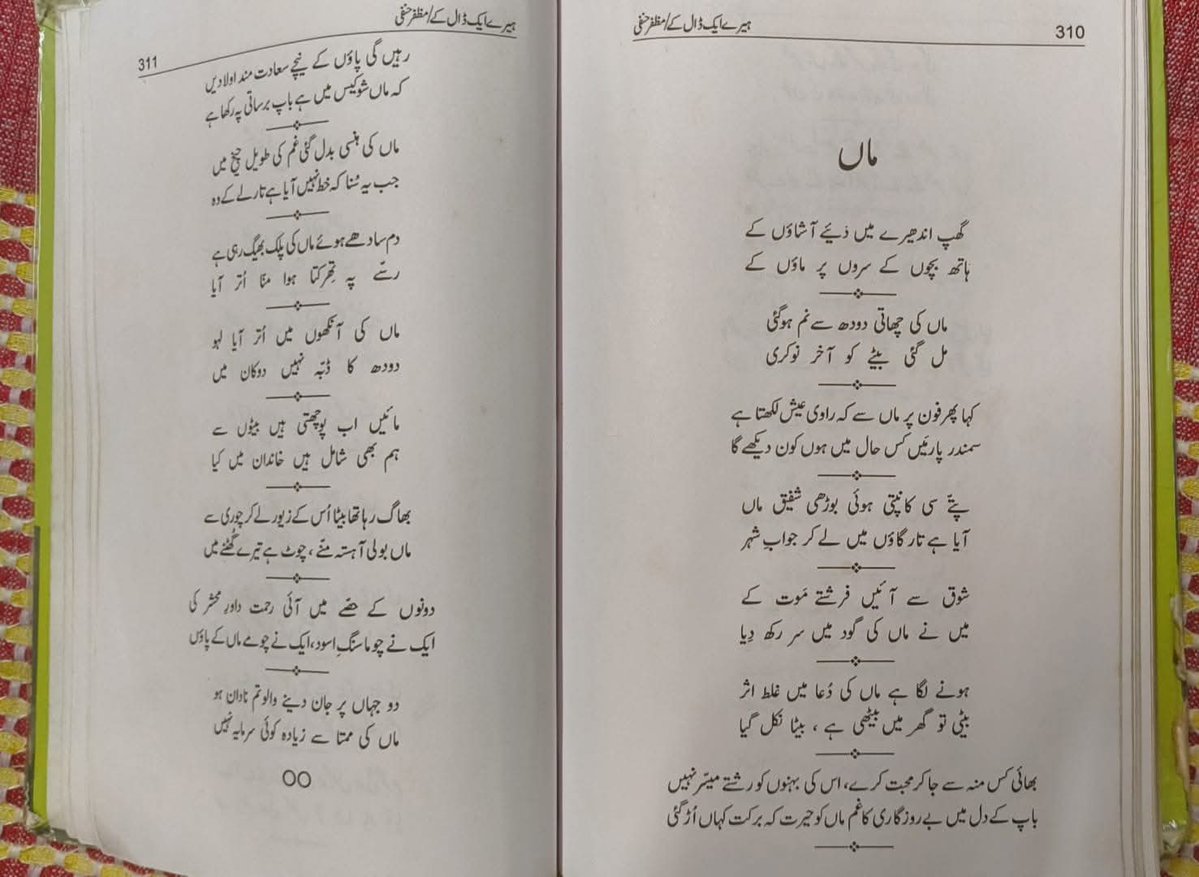 310
ہیرے ایک ڈال کے/مظفر حنفی
ماں
گھپ اندھیرے میں دَیئے آشاؤں کے
ہاتھ بچوں کے سروں پر ماؤں کے
ماں کی چھاتی دودھ سے نم ہوگئی
مل گئی بیٹے کو آخر نوکری
کہا پھر فون پر ماں سے کہ راوی عیش لکھتا ہے
سمندر پار مَیں کس حال میں ہوں کون دیکھے گا
پتّے سی کانپتی ہوئی بوڑھی شفیق ماں
آیا ہے تار گاؤں میں لے کر جوابِ شہر
شوق سے آئیں فرشتے مَوت کے
میں نے ماں کی گود میں سر رکھ دِیا
ہونے لگا ہے ماں کی دُعا میں غلط اثر
بیٹی تو گھر میں بیٹھی ہے ، بیٹا نکل گیا
بھائی کس منہ سے جا کر محبت کرے، اس کی بہنوں کو رشتے میسّر نہیں
باپ کے دل میں بے روزگاری کا غم ماں کو حیرت کہ برکت کہاں اُڑ گئی
311
ہیرے ایک ڈال کے/مظفر حنفی
رہیں گی پاؤں کے نیچے سعادت مند اولادیں
کہ ماں شوکیس میں ہے باپ برساتی پہ رکھا ہے
ماں کی ہنسی بدل گئی غم کی طویل چیخ میں
جب یہ سُنا کہ خط نہیں آیا ہے تار لے کے وہ
دم سادھے ہوئے ماں کی پلک بھیگ رہی ہے
رسّے پہ تھرکتا ہوا منّا اُتر آیا
ماں کی آنکھوں میں اُتر آیا لہو
دودھ کا ڈبّہ نہیں دوکان میں
مائیں اب پوچھتی ہیں بیٹوں سے
ہم بھی شامل ہیں خاندان میں کیا
بھاگ رہا تھا بیٹا اُس کے زیور لے کر چوری سے
ماں بولی آہستہ منّے ، چوٹ ہے تیرے گُھٹنے میں
دونوں کے حصّے میں آئی رحمت داورِ محشر کی
ایک نے چوما سنگِ اسود، ایک نے چومے ماں کے پاؤں
دو جہاں پر جان دینے والو تم نادان ہو
ماں کی ممتا سے زیادہ کوئی سرمایہ نہیں